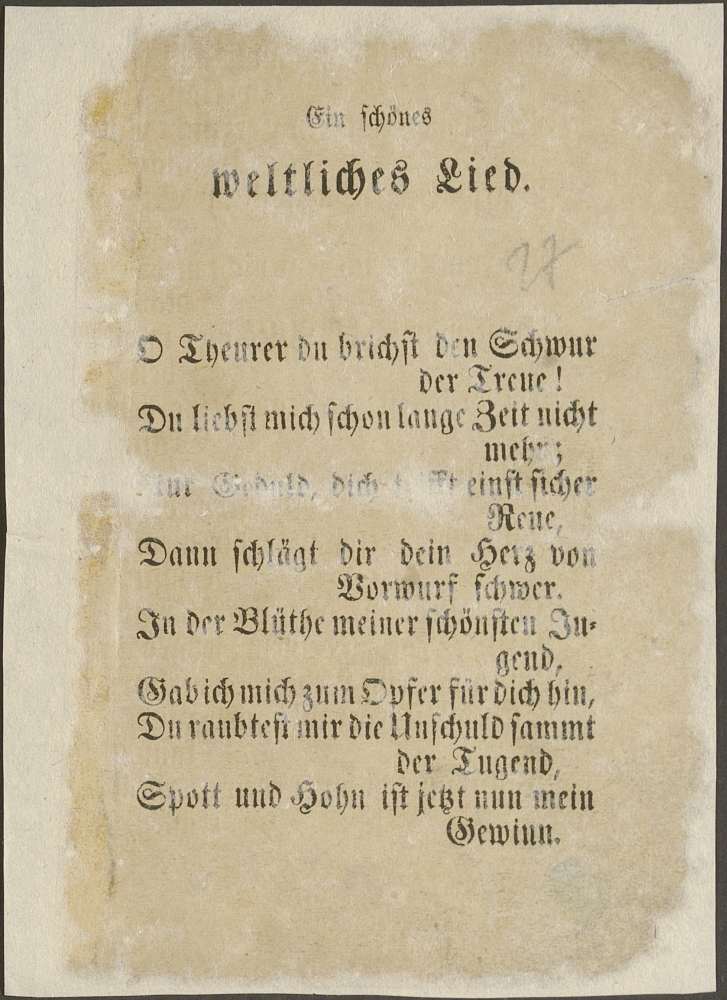 Ein schönes
weltliches Lied.
27
O Theurer du brichst den Schwur
der Treue!
Du liebst mich schon lange Zeit nicht
mehr;
Nur Geduld, dich trifft einst sicher
Reue,
Dann schlägt dir dein Herz von
Vorwurf schwer.
In der Blüthe meiner schönsten Ju-
gend,
Gab ich mich zum Opfer für dich hin,
Du raubtest mir die Unschuld sammt
der Tugend,
Spott und Hohn ist jetzt nun mein
Gewinn.